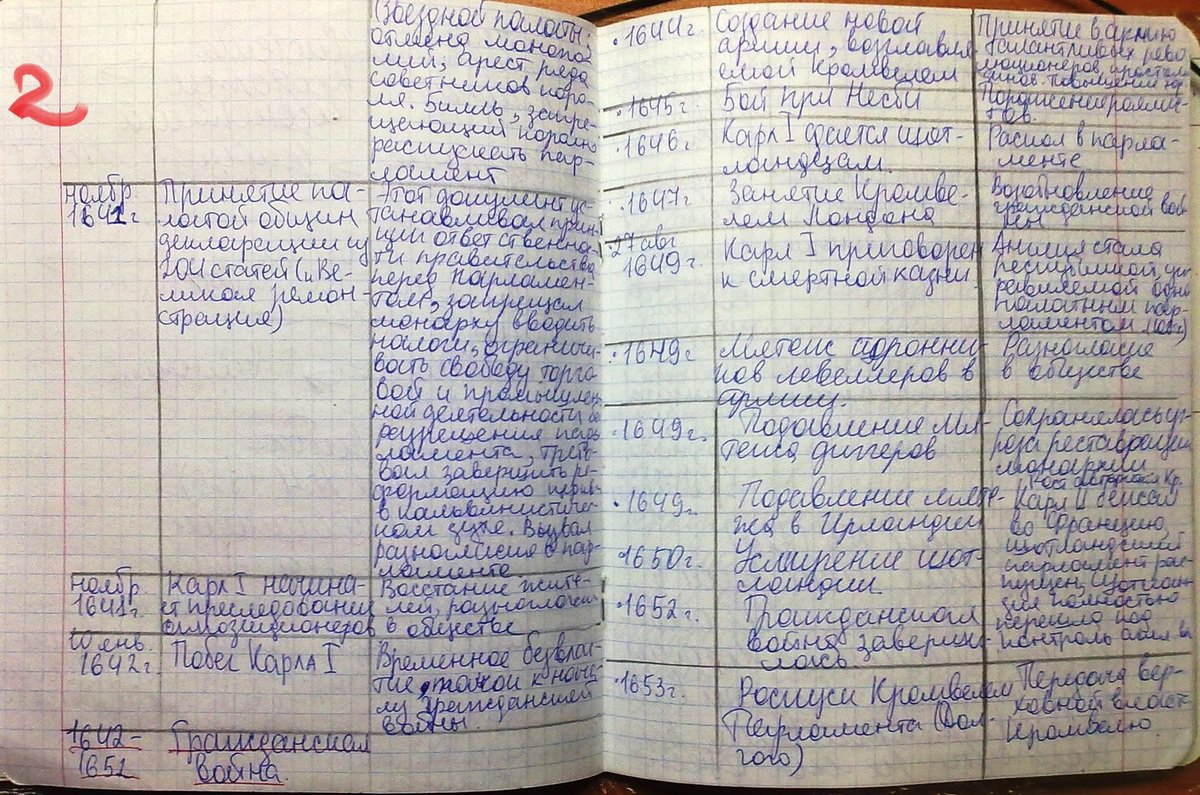 2
(Звездной палаты,
отмена монопо-
лий, арест ряда
советников коро-
ля. Билль, запре-
щающий королю
распускать пар-
ламент
ноябр.
1641г
Принятие па-
латой общин
декларации из
204 статей („Ве-
ликая ремон-
страция)
Этот документ ус-
танавливал прин-
цип ответственно-
ти правительства
перед парламен-
том, запрещал
монарху вводить
налоги, ограничи-
вать свободу торго
вой и промышлен-
ной деятельности без
разрешения парла-
ламента, требо-
вал завершить ре-
формацию церкви
в кальвинистиче-
ком духе. Вызвал
разногласие в пар-
ламенте
ноябр.
1641г.
Карл I начина-
ет преследования
оппозиционеров
Восстание жите-
лей, разногласия
в обществе
10 янв.
1642г.
Побег Карла I
Временное безвлас-
тие, толчок к нача-
лу гражданской
войны.
1642-
1652
Гражданская
война.
1644г.
Создание новой
армии, возглавля
емой Кромвелем
Принятие в армию
талантливых рево
люционеров
1645г.
Бой при Несби
Поражение роялис-
тов.
1646г.
Карл I сдается шот-
ландцам.
Раскол в парла-
менте
1647г
Занятие Кромве-
лем Лондона
Возобновление
гражданской вой
ны
27 янв
1649г.
Карл I приговорен
к смертной казни
Англия стала
республикой, уп-
равляемой одно
палатным пар-
ламентом
1649г.
Мятеж сторонни-
ков левеллеров в
армии.
Разногласие
в обществе
1649г.
Подавление мя-
тежа диггеров
Сохранялась уг-
роза реставрации
монархии
1649г.
Подавление мяте-
жа в Ирландии
Рост авторитета Кр.
1650г.
Усмирение шот-
ландии
Карл II бежал
во Францию,
шотландский
парламент рас-
пущен, Шотлан-
дия полностью
перешла под
контроль англ-в
1652г.
Гражданская
война заверши-
лась
1653г.
Роспуск Кромвелем
Парламента (Дол-
гого)
Передача вер-
ховной власти
Кромвелю.